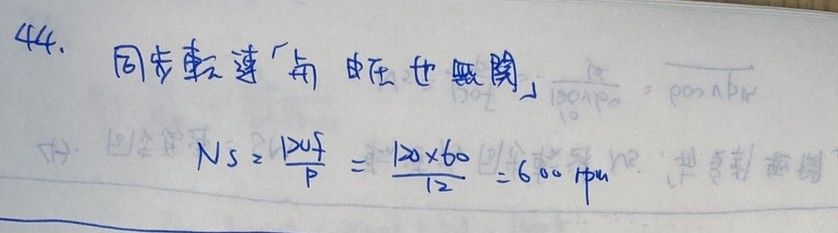 44.
同步転速「与电压也無関」
Ns = 120f/P = 120×60/12 = 600 rpm